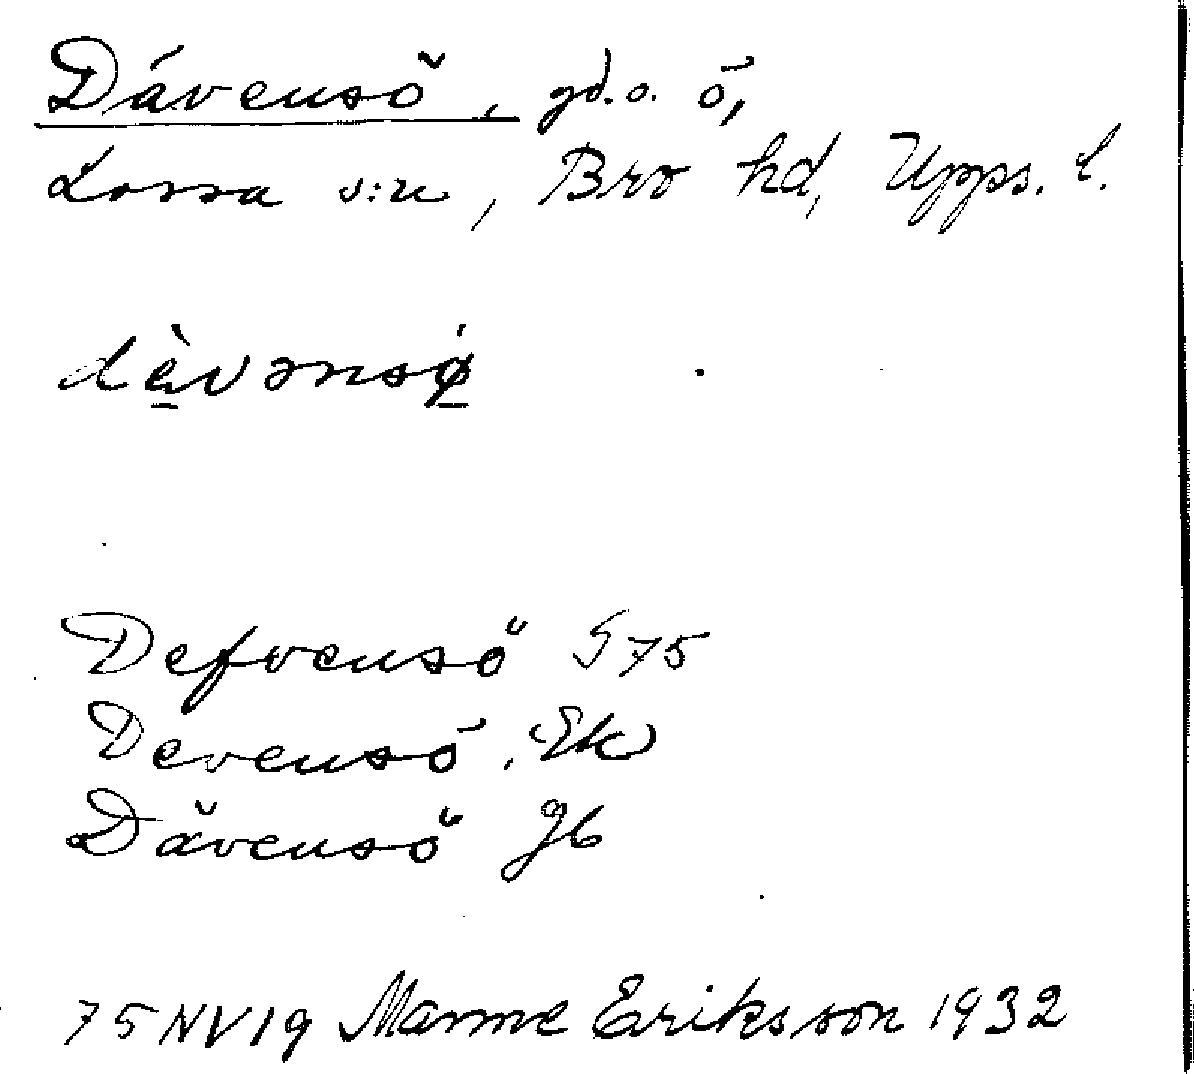 Dävensö, gd. o. ö,
Lossa s:n, Bro hd, Upps. l.
dè̱vənsǿ̱
Defvensö S75
Devensö, Ek
Dävensö Jb
75 NV 19 Manne Eriksson 1932